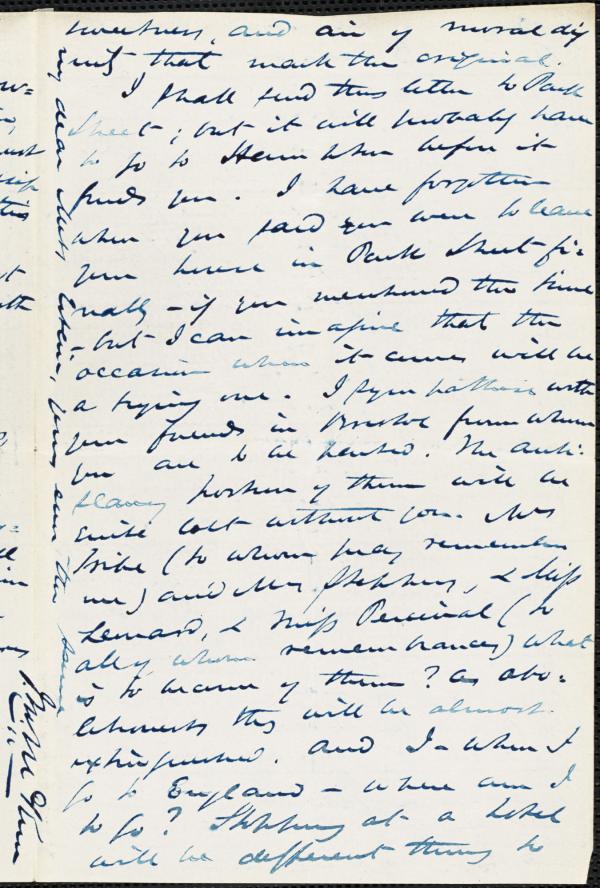 sweetness, and air of moral dig
nity that mark the original.
I shall send this letter to Park
Street; but it will probably have
to go to Herne when before it
finds you. I have forgotten
when you said you were to leave
your house in Park Street fi=
nally – if you mentioned the time
– but I can imagine that the
occasion when it comes will be
a trying one. I sympathise with
your friends in Bristol from whom
you are to be parted. The anti-
slavery portion of them will be
quite lost without you. Mrs
Tribe (to whom pray remember
me) and Mrs Stephens, & Miss
Lenard, & Miss Percival (to
all of whom remembrances) what
is to become of them? as abo=
litionists they will be almost
extinguished. And I – when I
go to England – where am I
to go? Stopping at a hotel
will be different thing to
my dear Mrs Estlin, yours ever the same